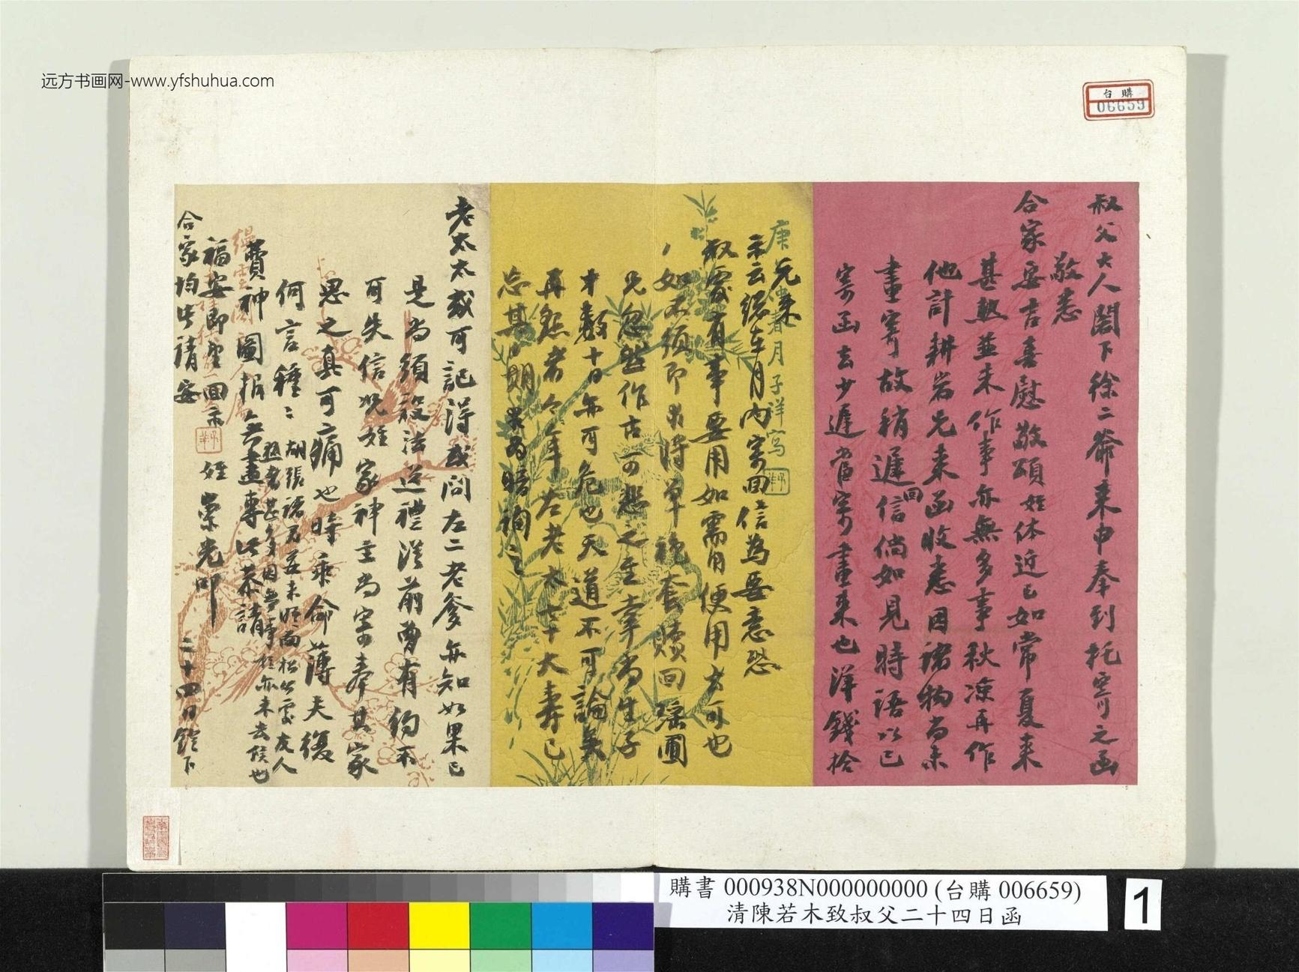 远方书画网-www.yfshuhua.com
台購
006659
叔父大人閣下徐二爺來申奉到托寄之函
敬悉
合家安吉喜慰敬頌姪体近已如常夏來
甚熱並未作事亦無多事秋涼再作
他計耕岩兄來函收悉因諸物尚未
畫寄故稍遲回信倘如見時語以已
寄函去少遲當寄畫來也洋錢拾
元來
示云縂在月內寄回信為要意恐
叔處有事要用如需用便用去可也
如不須即
兄忽然作古可悲之至幸尚生子
才數十日亦可危也天道不可論矣
再啟者今年左老太七十大壽已
忘其日期
庚春月子祥寫
老太太或可記得或問左二老爹亦知如果已
是尚須設法送禮從前曾有約不
可失信況姪家神主尚寄奉其家
思之真可痛也時乖命薄夫復
何言種種
胡張諸君並未晤面松雲友人
費神圖報無盡專此恭請
福安即望回示
姪崇光叩
二十四日燈下
合家均此請安
購書 000938N000000000 (台購 006659)
清陳若木致叔父二十四日函
1